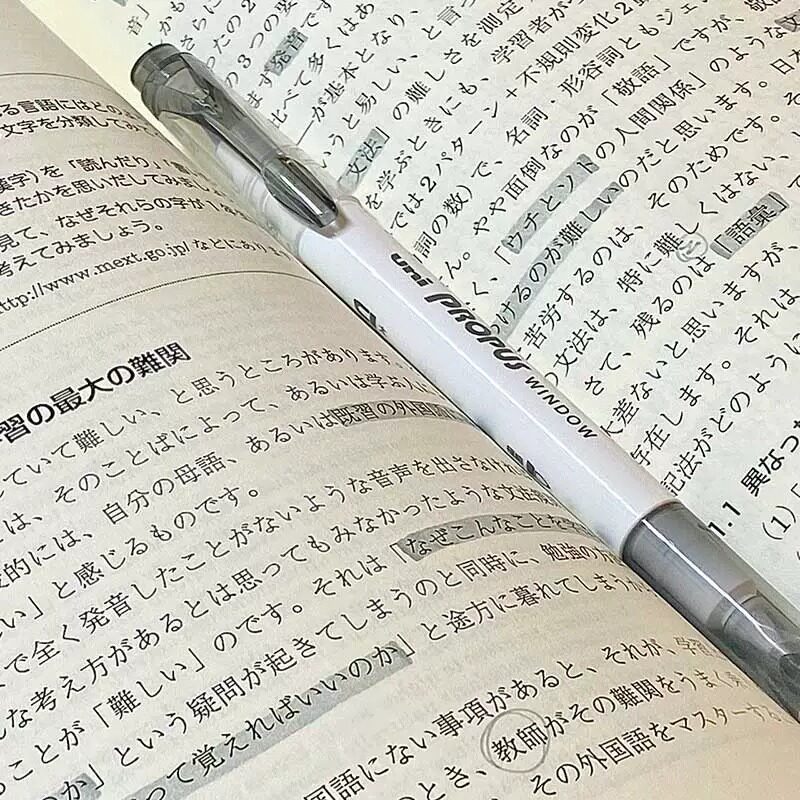 る言語にはどのよ
文字を分類してみて
漢字）を「読んだり」「書
きたかを思いだしてみまし
見て、なぜそれらの字が1年
考えてみましょう。
http://www.mext.go.jp/などにありま
習の最大の難関
していて難しい、と思うところがあります。
は、そのことばによって、あるいは学ぶ人に
的には、自分の母語、あるいは既習の外国語
い」と感じるものです。
で全く発音したことがないような音声を出さなけれ
な考え方があるとは思ってもみなかったような文法現
ことが「難しい」のです。それは「なぜこんなことを学
のか」という疑問が起きてしまうのと同時に、勉強の方
って覚えればいいのか」と途方に暮れてしまうか
国語にない事項があると、それが、学習
のとき、教師がその難関をうまく
その外国語をマスターする
uni PROPUS WINDOW
かも
さらに
ったの2
の3つの要
ます発音です
比べて多くはあ
が基本となり、
いうと易しい、と言っ
文法」の難しさを測定
を学ぶときにも、学習者が
では2パターン＋不規則変化2
詞の数）で、名詞・形容詞ともジェ
ん。やや面倒なのが「敬語」ですが、敬
く、「ウチとソト」の人間関係」のような文
つけるのが難しいのだと思います。日
苦労するのは、そのためです。そ
の文法は、特に難しくはない、
さて、残るのは「語彙」
大差ないと思いますが、
存在します。それは
記法がどのように
1.1 異なっ
(1)「